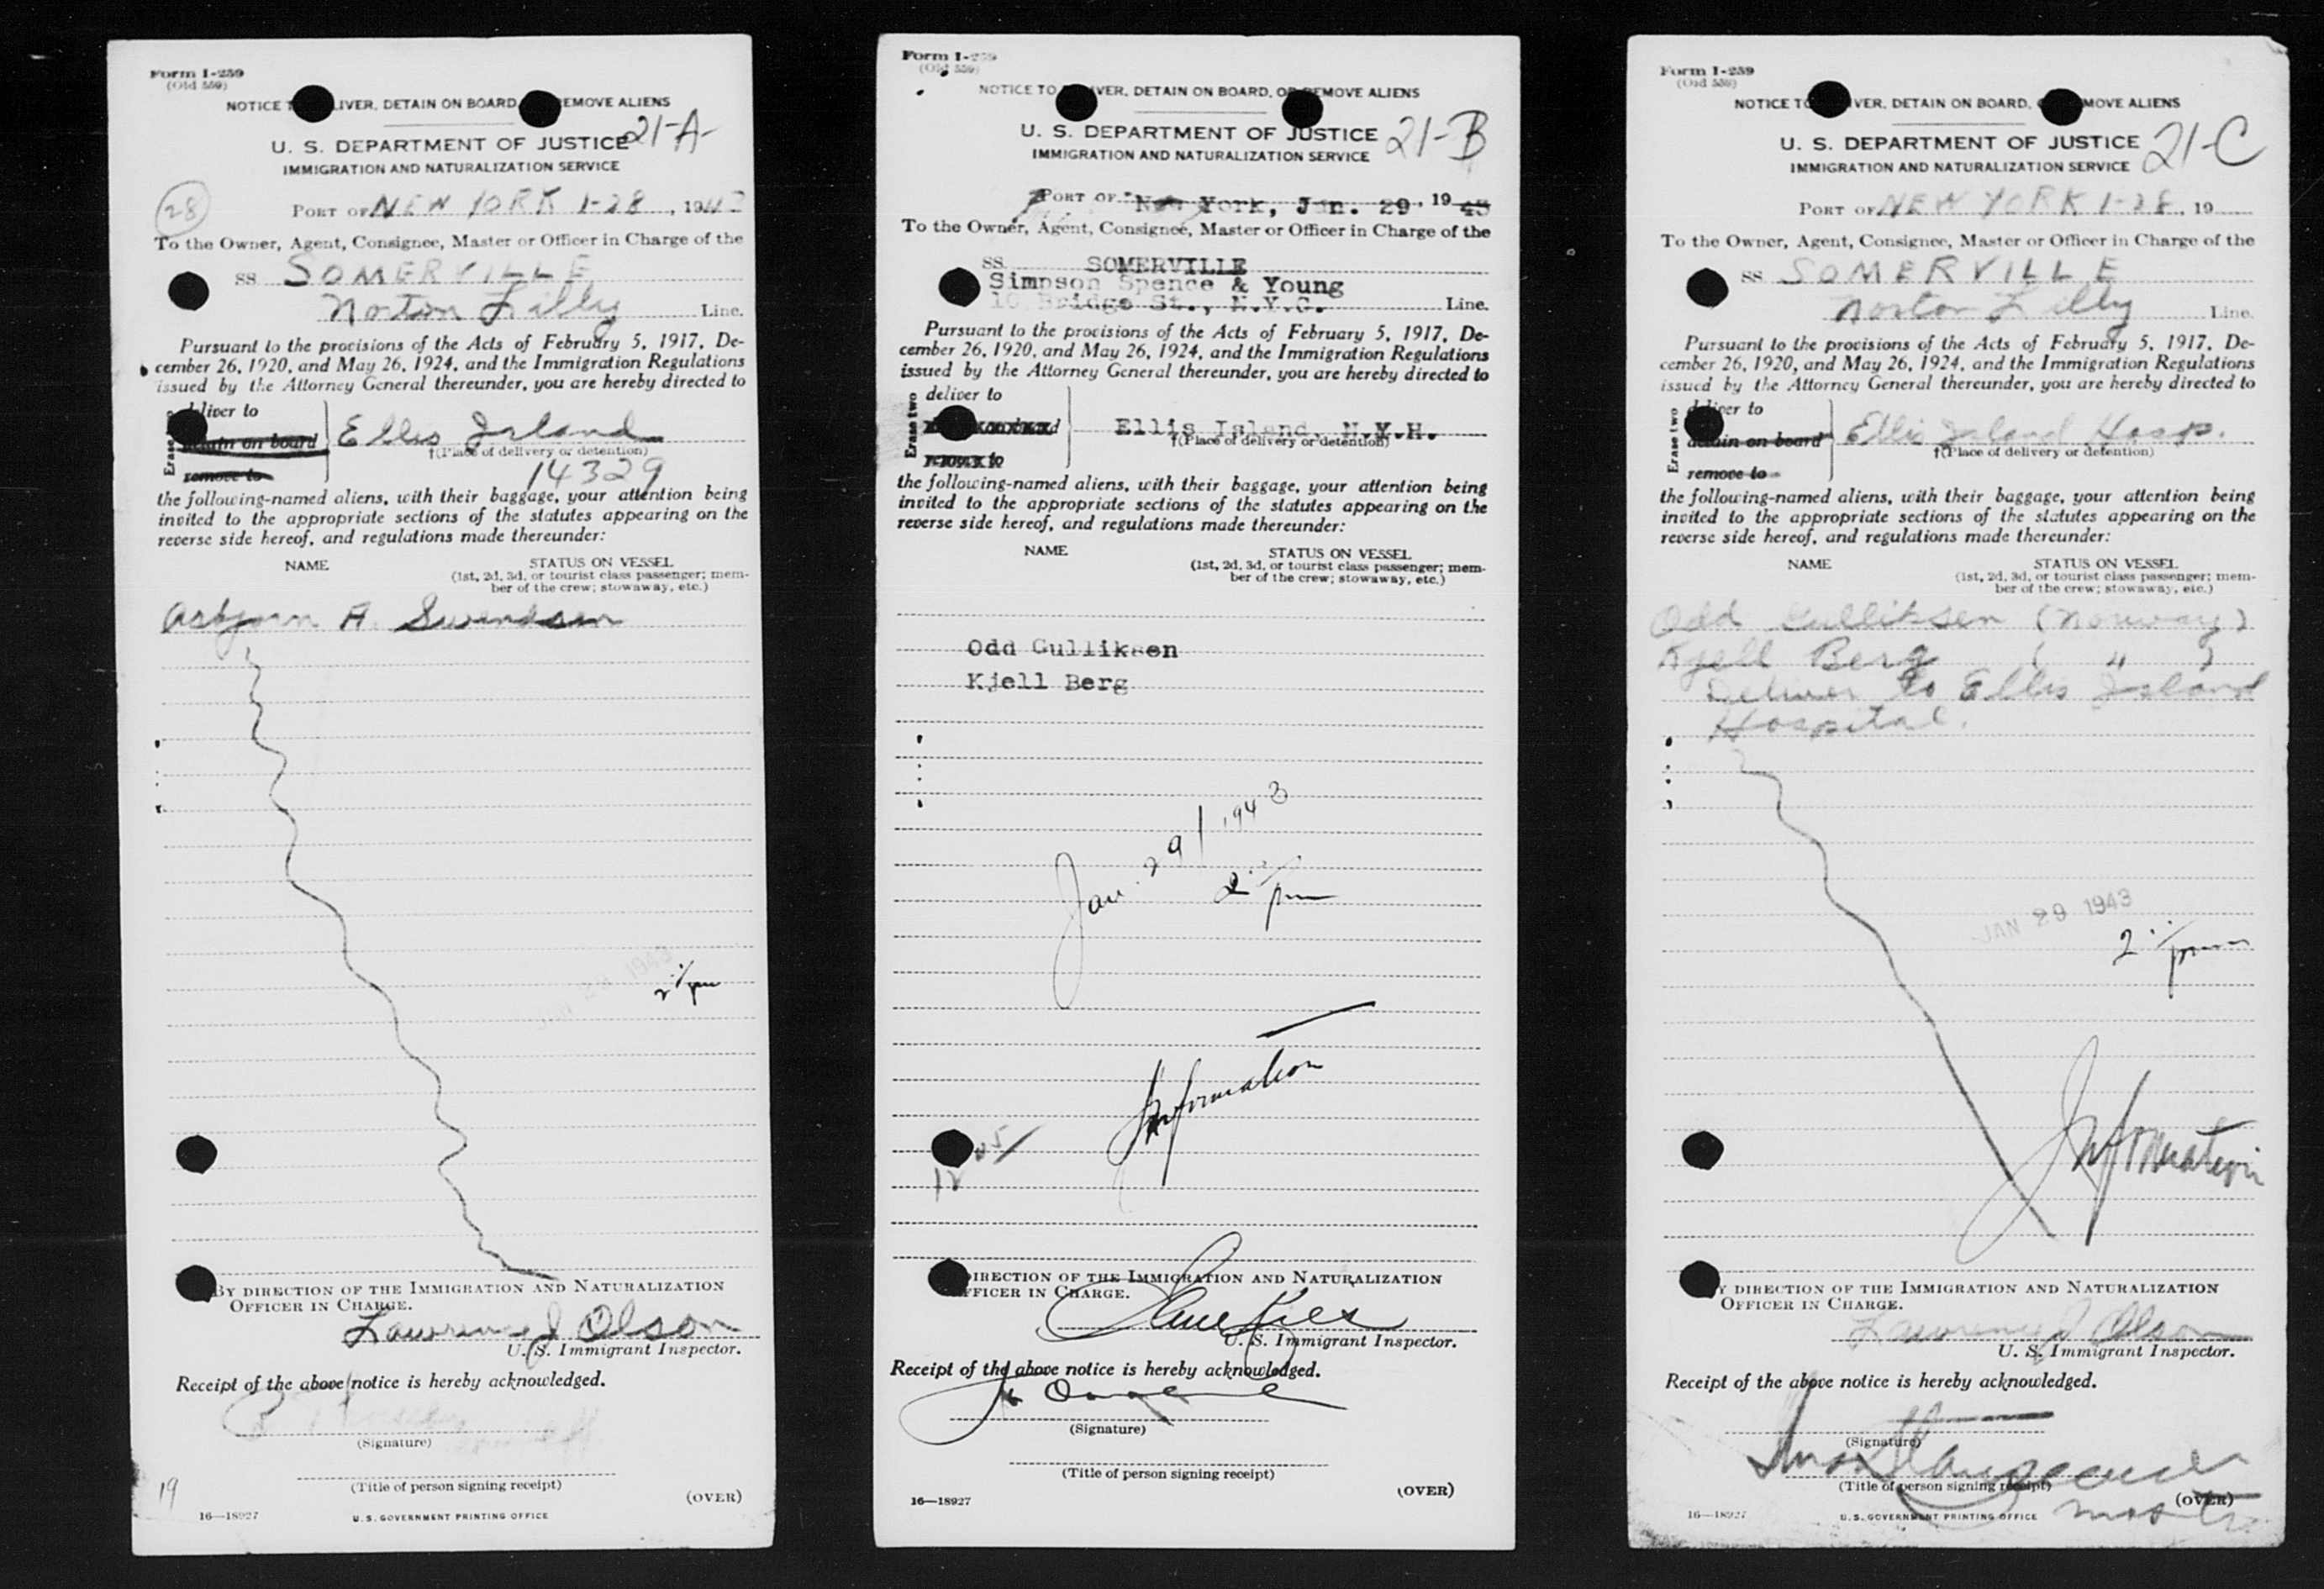 Form I-259
(Old 559)
NOTICE LIVER, DETAIN ON BOARD, EMOVE ALIENS
U. S. DEPARTMENT OF JUSTICE 21-A
IMMIGRATION AND NATURALIZATION SERVICE
28
PORT OF NEW YORK 1-28, 1943
To the Owner, Agent, Consignee, Master or Officer in Charge of the
SS SOMERVILLE
Norton Lilly Line.
Pursuant to the provisions of the Acts of February 5, 1917, De-
cember 26, 1920, and May 26, 1924, and the Immigration Regulations
issued by the Attorney General thereunder, you are hereby directed to
Erase
liver to
tain on board Ellis Island
†(Place of delivery or detention)
remove to 14329
the following-named aliens, with their baggage, your attention being
invited to the appropriate sections of the statutes appearing on the
reverse side hereof, and regulations made thereunder:
NAME STATUS ON VESSEL
(1st, 2d, 3d, or tourist class passenger; mem-
ber of the crew; stowaway, etc.)
Asbjorn A. Swendsen
1943
2 pm
BY DIRECTION OF THE IMMIGRATION AND NATURALIZATION
OFFICER IN CHARGE.
Lawrence J Olson
U. S. Immigrant Inspector.
Receipt of the above notice is hereby acknowledged.
(Signature)
19
(Title of person signing receipt)
(OVER)
16—18927 U. S. GOVERNMENT PRINTING OFFICE
Form I-259
(Old 559)
NOTICE TO IVER, DETAIN ON BOARD, OR REMOVE ALIENS
U. S. DEPARTMENT OF JUSTICE 21-B
IMMIGRATION AND NATURALIZATION SERVICE
PORT OF New York, Jan. 29, 19 43
To the Owner, Agent, Consignee, Master or Officer in Charge of the
SS. SOMERVILLE
Simpson Spence & Young
10 Bridge St., N.Y.C. Line.
Pursuant to the provisions of the Acts of February 5, 1917, De-
cember 26, 1920, and May 26, 1924, and the Immigration Regulations
issued by the Attorney General thereunder, you are hereby directed to
Erase two
deliver to
Ellis Island, N.Y.H.
†(Place of delivery or detention)
remove to
the following-named aliens, with their baggage, your attention being
invited to the appropriate sections of the statutes appearing on the
reverse side hereof, and regulations made thereunder:
NAME STATUS ON VESSEL
(1st, 2d, 3d, or tourist class passenger; mem-
ber of the crew; stowaway, etc.)
Odd Gulliksen
Kjell Berg
Jan. 29/1943
2 pm
Information
12
DIRECTION OF THE IMMIGRATION AND NATURALIZATION
OFFICER IN CHARGE.
U. S. Immigrant Inspector.
Receipt of the above notice is hereby acknowledged.
(Signature)
(Title of person signing receipt)
16—18927 (OVER)
Form I-259
(Old 559)
NOTICE TO VER, DETAIN ON BOARD, MOVE ALIENS
U. S. DEPARTMENT OF JUSTICE 21-C
IMMIGRATION AND NATURALIZATION SERVICE
PORT OF NEW YORK 1-28, 19
To the Owner, Agent, Consignee, Master or Officer in Charge of the
SS SOMERVILLE
Norton Lilly Line.
Pursuant to the provisions of the Acts of February 5, 1917, De-
cember 26, 1920, and May 26, 1924, and the Immigration Regulations
issued by the Attorney General thereunder, you are hereby directed to
Erase two
deliver to
detain on board Ellis Island Hosp.
†(Place of delivery or detention)
remove to
the following-named aliens, with their baggage, your attention being
invited to the appropriate sections of the statutes appearing on the
reverse side hereof, and regulations made thereunder:
NAME STATUS ON VESSEL
(1st, 2d, 3d, or tourist class passenger; mem-
ber of the crew; stowaway, etc.)
Odd Gulliksen (Norway)
Kjell Berg ( " )
Deliver to Ellis Island
Hospital.
JAN 29 1943
2 pm
Information
BY DIRECTION OF THE IMMIGRATION AND NATURALIZATION
OFFICER IN CHARGE.
Lawrence J Olson
U. S. Immigrant Inspector.
Receipt of the above notice is hereby acknowledged.
(Signature)
(Title of person signing receipt)
(OVER)
16—18927 U. S. GOVERNMENT PRINTING OFFICE